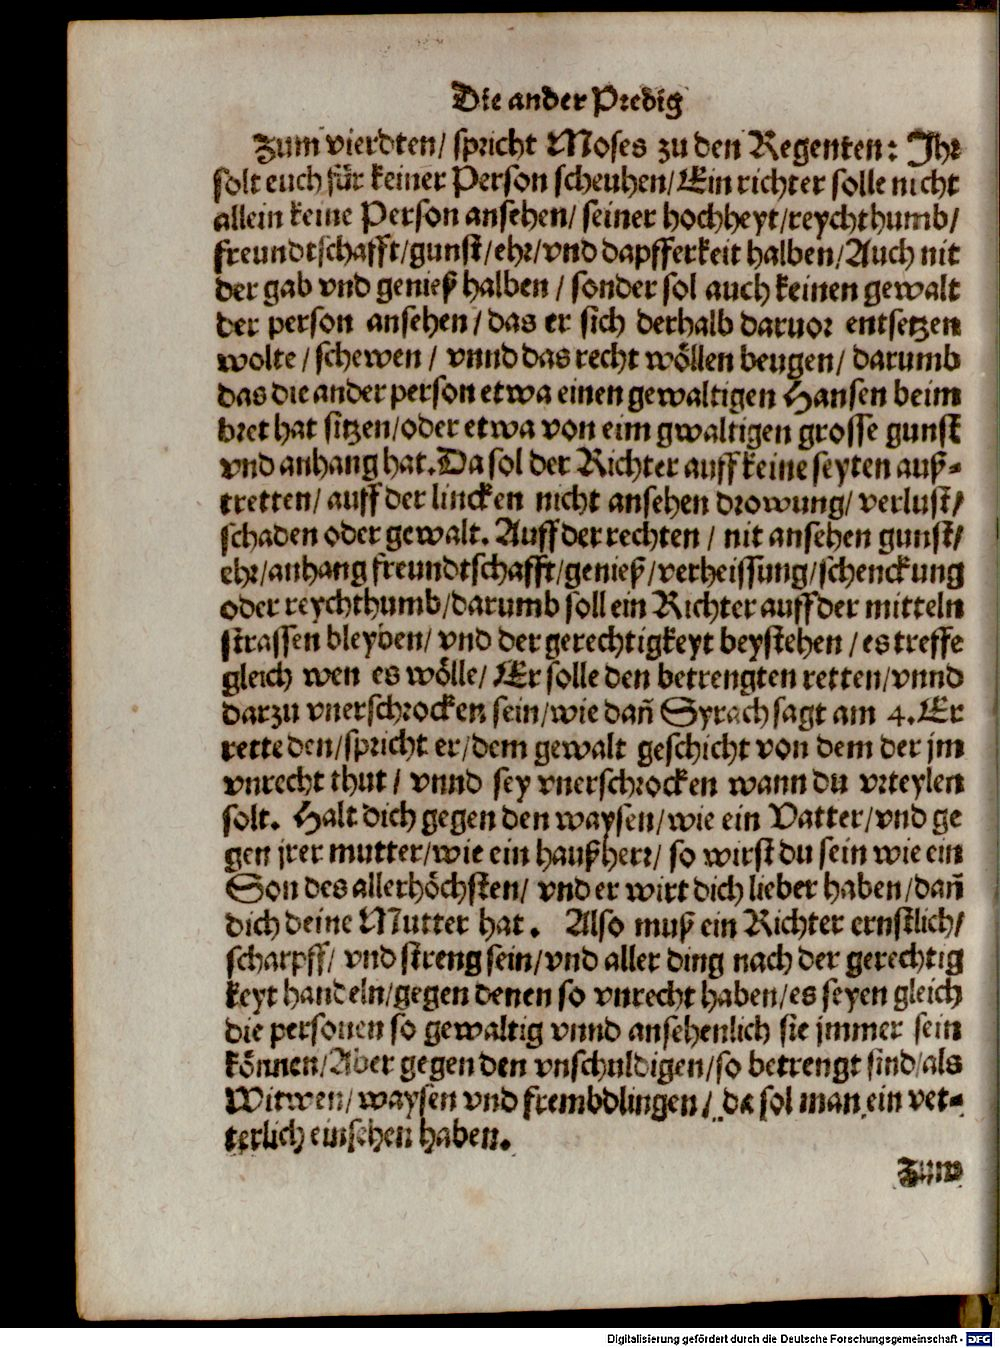 Die ander Predig
Zum vierdten/ spricht Moses zu den Regenten: Ihr
solt euch für keiner Person scheuhen/ Ein richter solle nicht
allein keine Person ansehen/ seiner hochheyt/reychthumb/
freundtschafft/gunst/ehr/vnd dapfferkeit halben/Auch nit
der gab vnd genieß halben / sonder sol auch keinen gewalt
der person ansehen/ das er sich derhalb daruor entsetzen
wolte / schewen / vnnd das recht wöllen beugen/ darumb
das die ander person etwa einen gewaltigen Hansen beim
bret hat sitzen/oder etwa von eim gwaltigen grosse gunst
vnd anhang hat. Da sol der Richter auff keine seyten auß-
tretten/ auff der lincken nicht ansehen drowung/ verlust/
schaden oder gewalt. Auff der rechten / nit ansehen gunst/
ehr/anhang freundtschafft/genieß/verheissung/schenckung
oder reychthumb/darumb soll ein Richter auff der mitteln
strassen bleyben/ vnd der gerechtigkeyt beystehen / es treffe
gleich wen es wölle/ Er solle den betrengten retten/vnnd
darzu vnerschrocken sein/wie dañ Syrach sagt am 4. Er
rette den/spricht er/dem gewalt geschicht von dem der jm
vnrecht thut/ vnnd sey vnerschrocken wann du vrteylen
solt. Halt dich gegen den waysen/wie ein Vatter/vnd ge
gen jrer mutter/wie ein haußherr/ so wirst du sein wie ein
Son des allerhöchsten/ vnd er wirt dich lieber haben/dañ
dich deine Mutter hat. Also muß ein Richter ernstlich/
scharpff/ vnd streng sein/vnd aller ding nach der gerechtig
keyt handeln/gegen denen so vnrecht haben/es seyen gleich
die personen so gewaltig vnnd ansehenlich sie jmmer sein
können/Aber gegen den vnschuldigen/so betrengt sind/als
Witwen/ waysen vnd frembdlingen/ da sol man ein vet-
terlich einsehen haben.
Zum
Digitalisierung gefördert durch die Deutsche Forschungsgemeinschaft - DFG